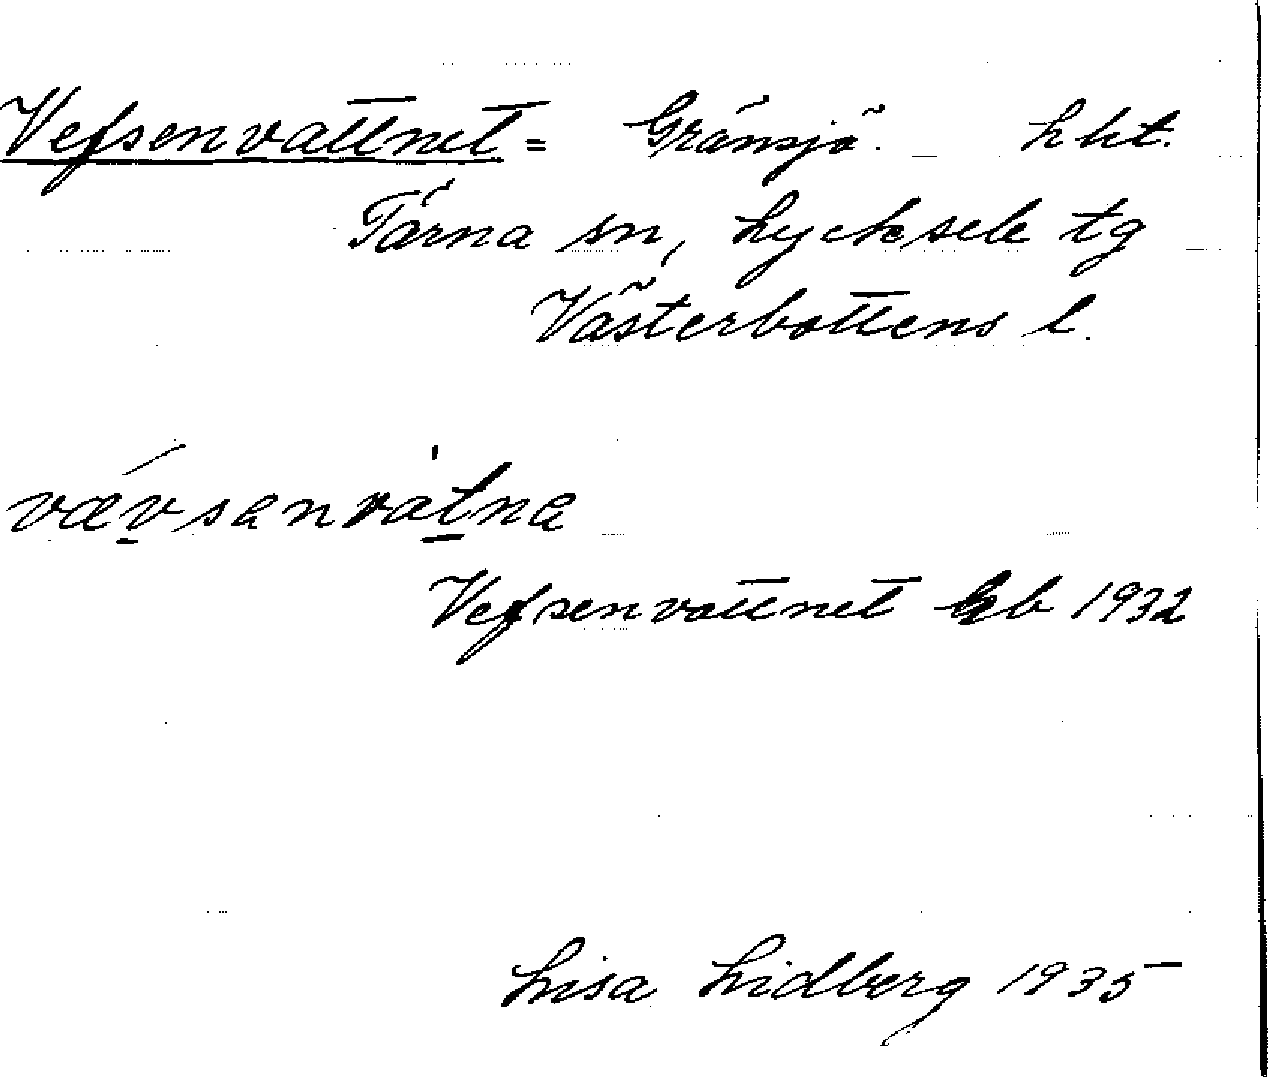 Vefsenvattnet = Gränsjö. hht.
Tärna sn, Lycksele tg
Västerbottens l.
vævsanvatna
Vefsenvattnet Gb 1932
Lisa Lidberg 1935